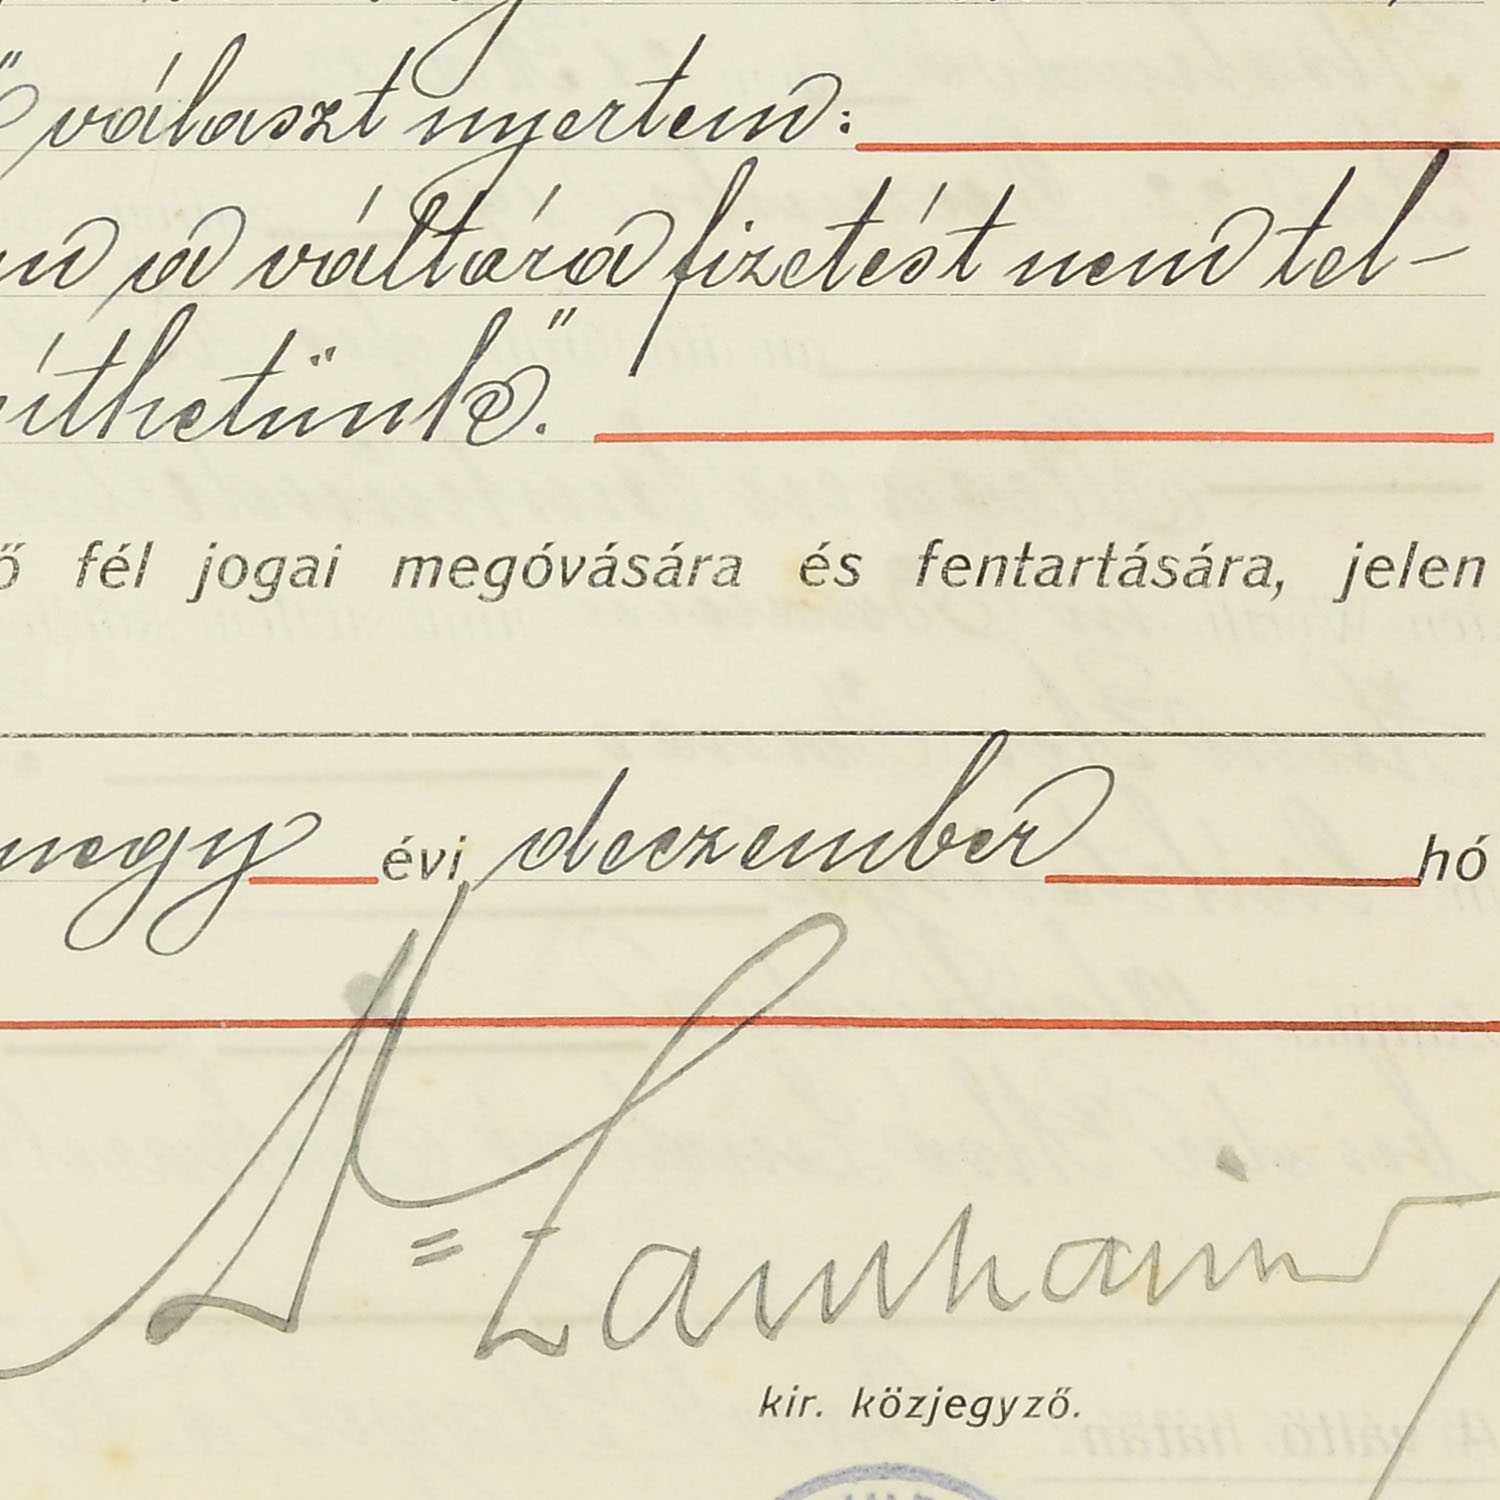 választ nyertem:
a váltóra fizetést nem tel-
íthetünk."
ő fél jogai megóvására és fentartására, jelen
negy évi deczember hó
kir. közjegyző.